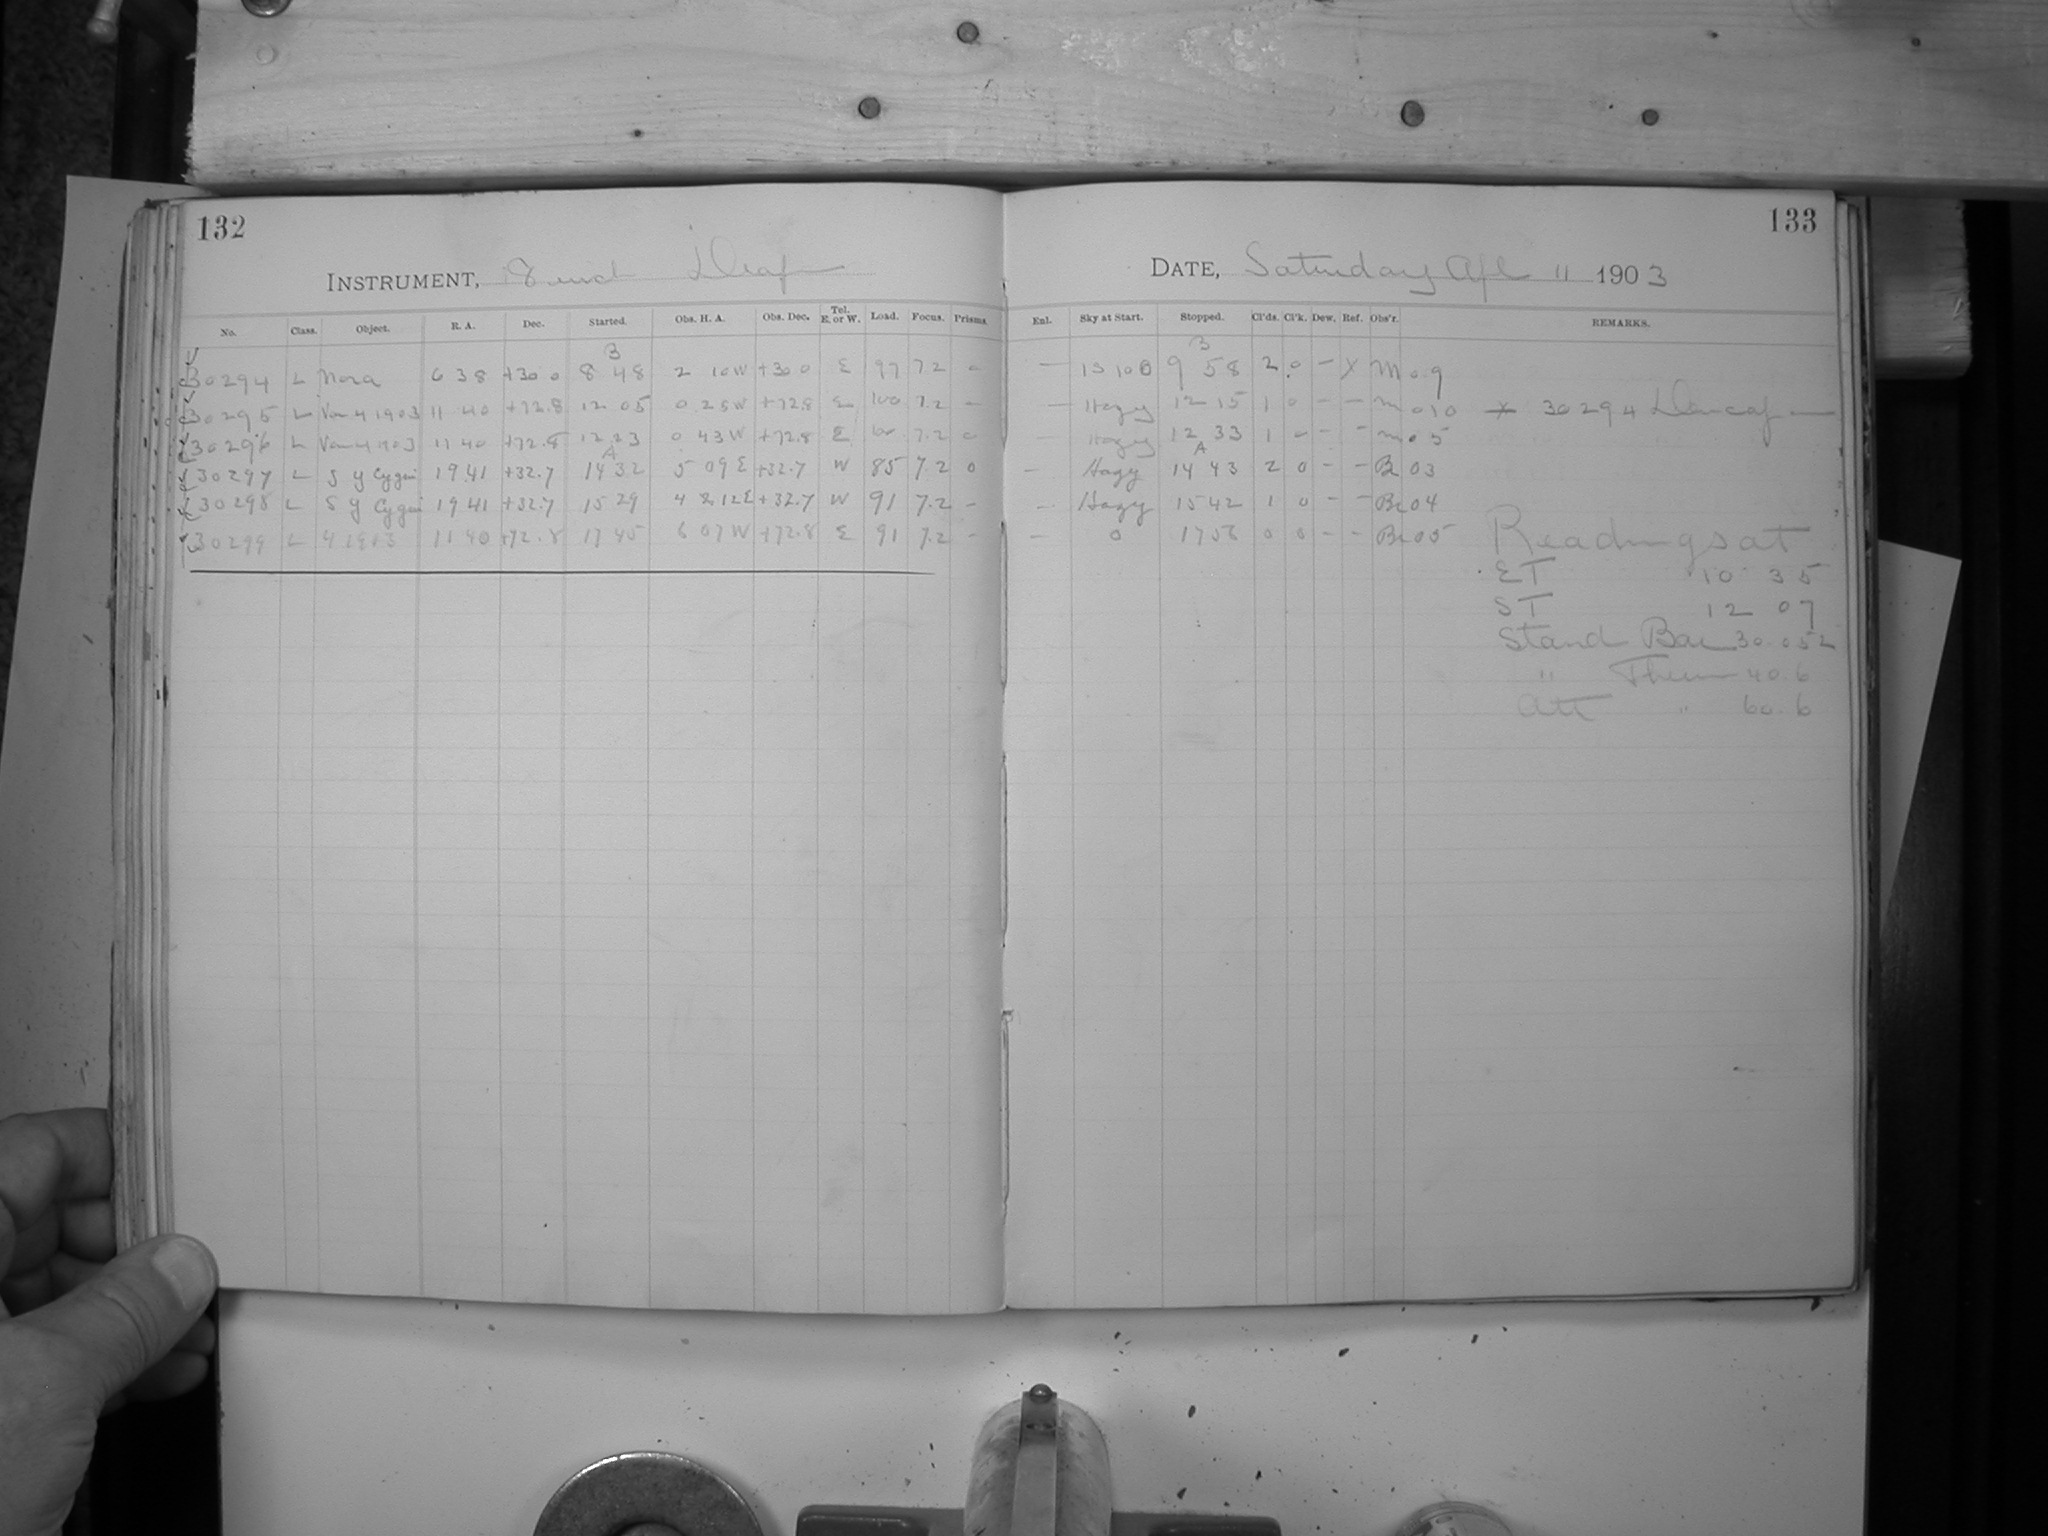 132
INSTRUMENT, 8 inch Draper
No. Class. Object. R. A. Dec. Started. Obs. H. A. Obs. Dec. Tel. E. or W. Load. Focus. Prisms.
B
30294 L Nova 6 38 +30 0 8 48 2 10 W +30 0 E 97 7.2 0
30295 L Var 4 1903 11 40 +72.8 12 05 0 25 W +72.8 E 100 7.2 -
30296 L Var 4 1903 11 40 +72.8 12 23 0 43 W +72.8 E 7.2 0
A
30297 L S Y Cygni 19 41 +32.7 14 32 5 09 E +32.7 W 85 7.2 0
30298 L S Y Cygni 19 41 +32.7 15 29 4 12 E +32.7 W 91 7.2 -
30299 L 4 1903 11 40 +72.8 17 45 6 07 W +72.8 E 91 7.2 -
133
DATE, Saturday Apl 11 1903
Enl. Sky at Start. Stopped. Cl'ds. Cl'k. Dew. Ref. Obs'r. REMARKS.
B
— 9 58 2 0 - X M 0 9
— Hazy 12 15 1 0 - - M 0 10 X 30294
— Hazy 12 33 1 - - - M 0 5
A
— Hazy 14 43 2 0 - - B 03
— Hazy 15 42 1 0 - - Br 04
— 0 17 56 0 0 - - Br 05
Readings at
ET 10 35
ST 12 07
Stand Bar 30.052
" Ther 40.6
Att " 60.6